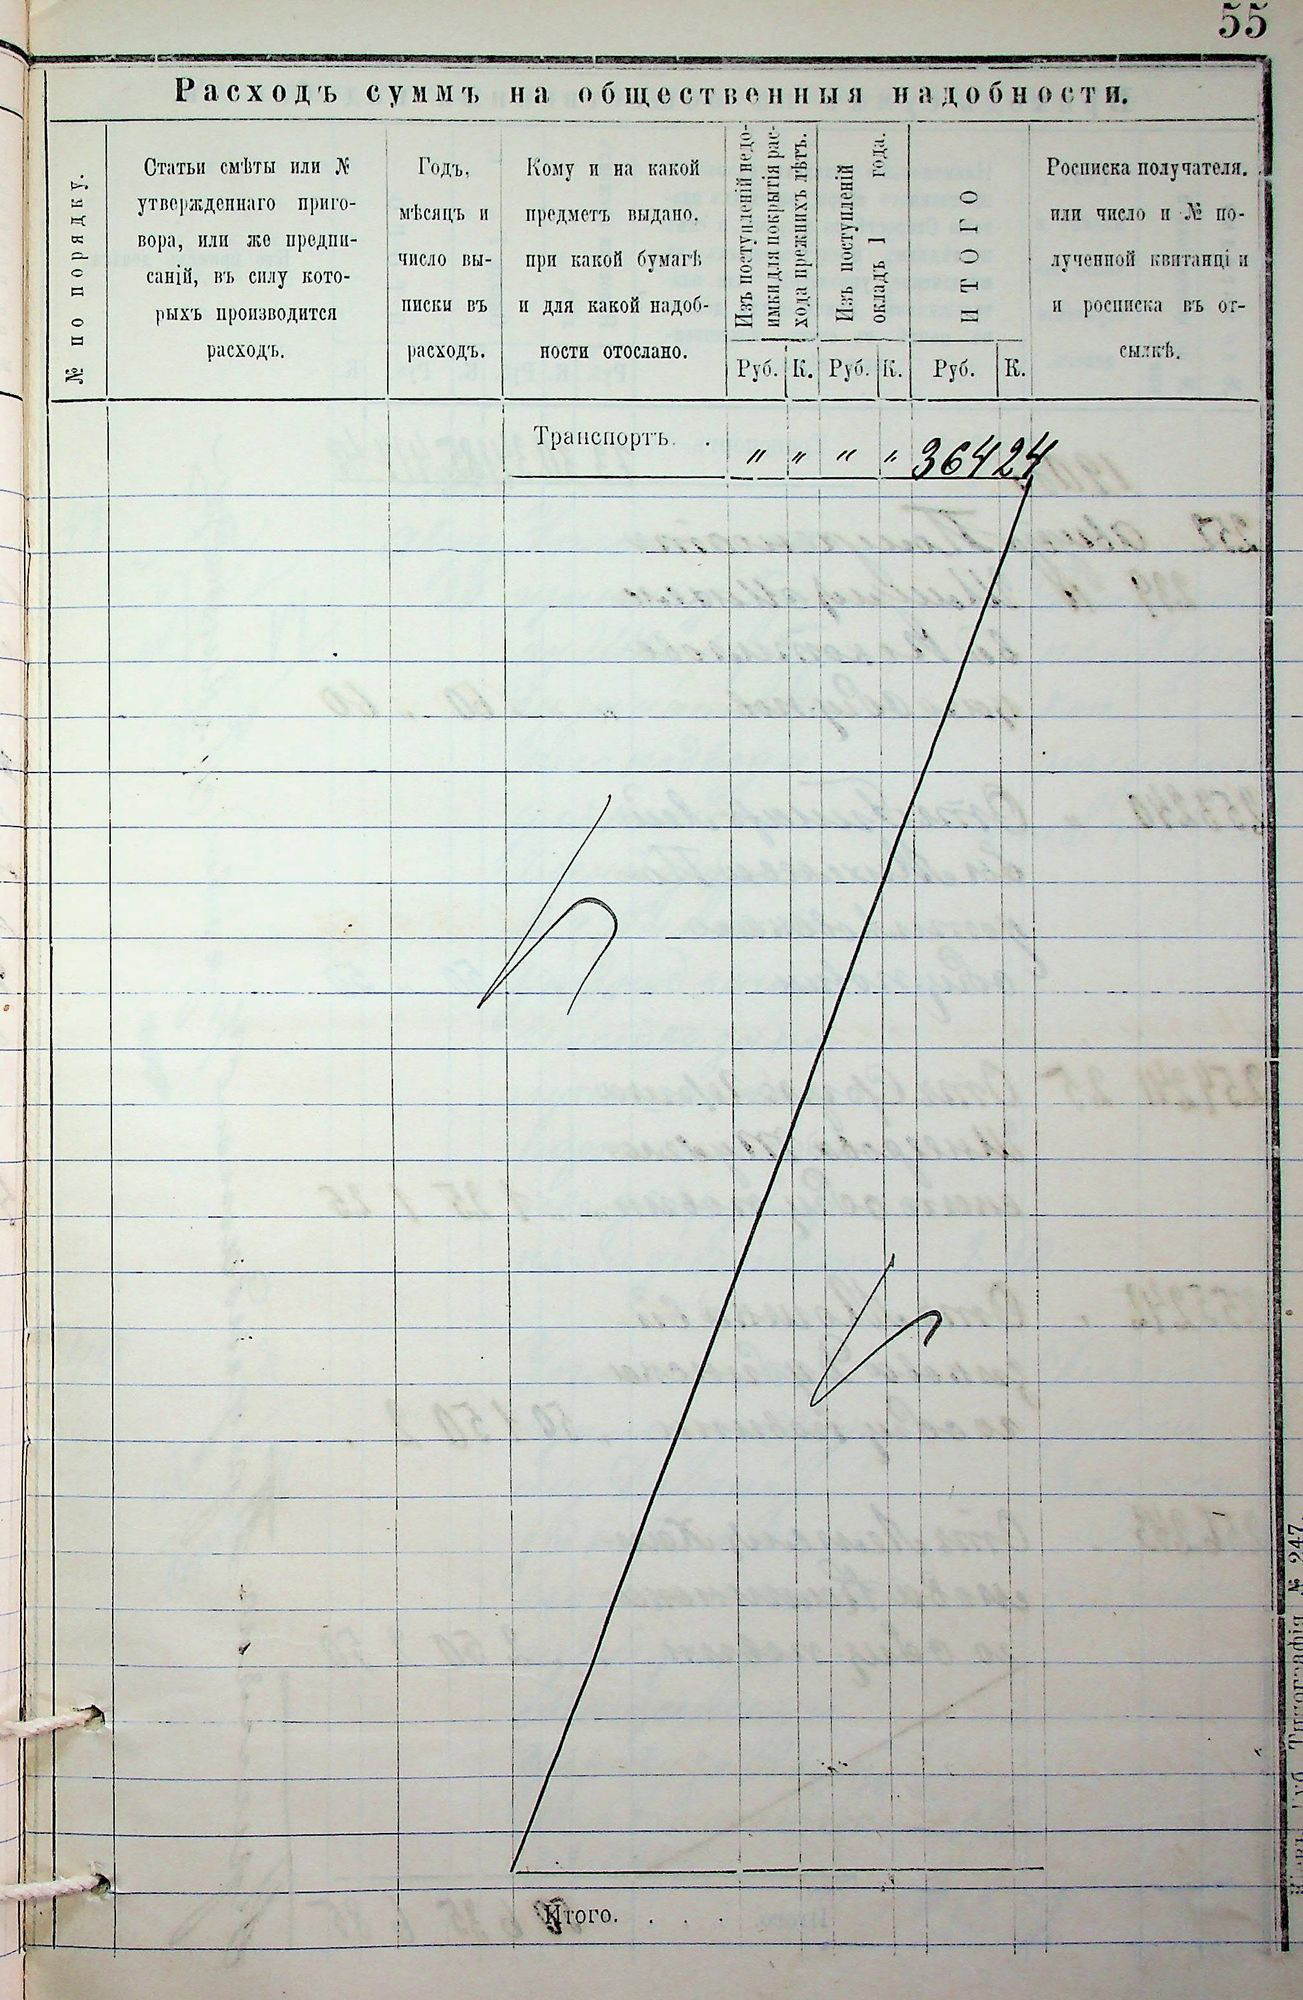 55
Расходъ суммъ на общественныя надобности.
№ по порядку.
Статьи смѣты или №
утвержденнаго приго-
вора, или же предпи-
саній, въ силу кото-
рыхъ производится
расходъ.
Годъ,
мѣсяцъ и
число вы-
писки въ
расходъ.
Кому и на какой
предметъ выдано.
при какой бумагѣ
и для какой надоб-
ности отослано.
Изъ поступленій недо-
имки для покрытія рас-
хода прежнихъ лѣтъ.
Руб. К.
Изъ поступленій
окладъ 1 года.
Руб. К.
ИТОГО
Руб. К.
Росписка получателя,
или число и № по-
лученной квитанці и
и росписка въ от-
сылкѣ.
Транспортъ. . " " " " 364 24
Итого. . . . .
Губ. Типографія № 247